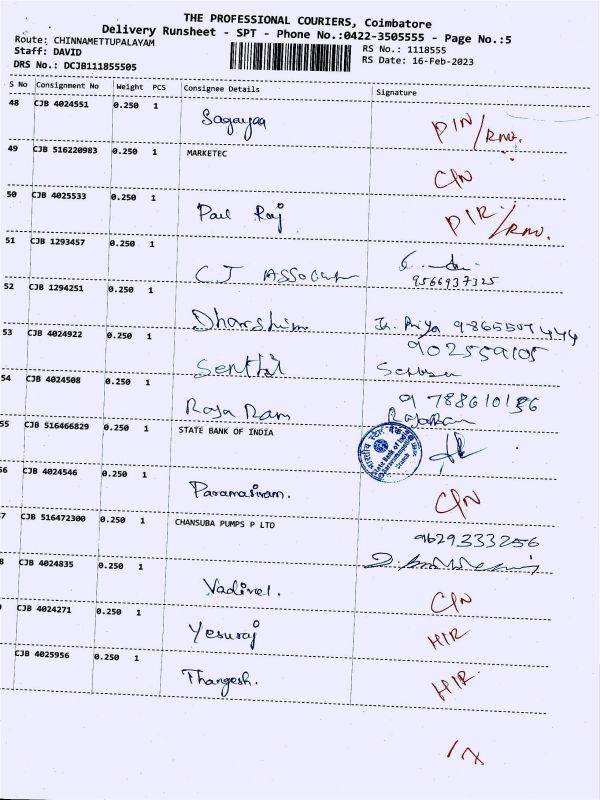 THE PROFESSIONAL COURIERS, Coimbatore
Delivery Runsheet - SPT - Phone No.:0422-3505555 - Page No.:5
Route: CHINNAMETTUPALAYAM
Staff: DAVID
DRS No.: DCJB111855505
RS No.: 1118555
RS Date: 16-Feb-2023
S No Consignment No Weight PCS Consignee Details Signature
48 CJB 4024551 0.250 1 Sagayaa PIN/RMV.
49 CJB 516220983 0.250 1 MARKETEC C/N
50 CJB 4025533 0.250 1 Paul Raj PIR/RMV.
51 CJB 1293457 0.250 1 CJ Associate
9566937325
52 CJB 1294251 0.250 1 Dharshini Priya 9865507474
53 CJB 4024922 0.250 1 Senthil 902559105
54 CJB 4024508 0.250 1 Raja Ram 9788610156
RajaRam
55 CJB 516466829 0.250 1 STATE BANK OF INDIA
State Bank of India
56 CJB 4024546 0.250 1 Paramasivam. C/N
57 CJB 516472300 0.250 1 CHANSUBA PUMPS P LTD 9629333256
8 CJB 4024835 0.250 1 Vadivel. C/N
CJB 4024271 0.250 1 Yesuraj HIR
CJB 4025956 0.250 1 Thangesh. HIR